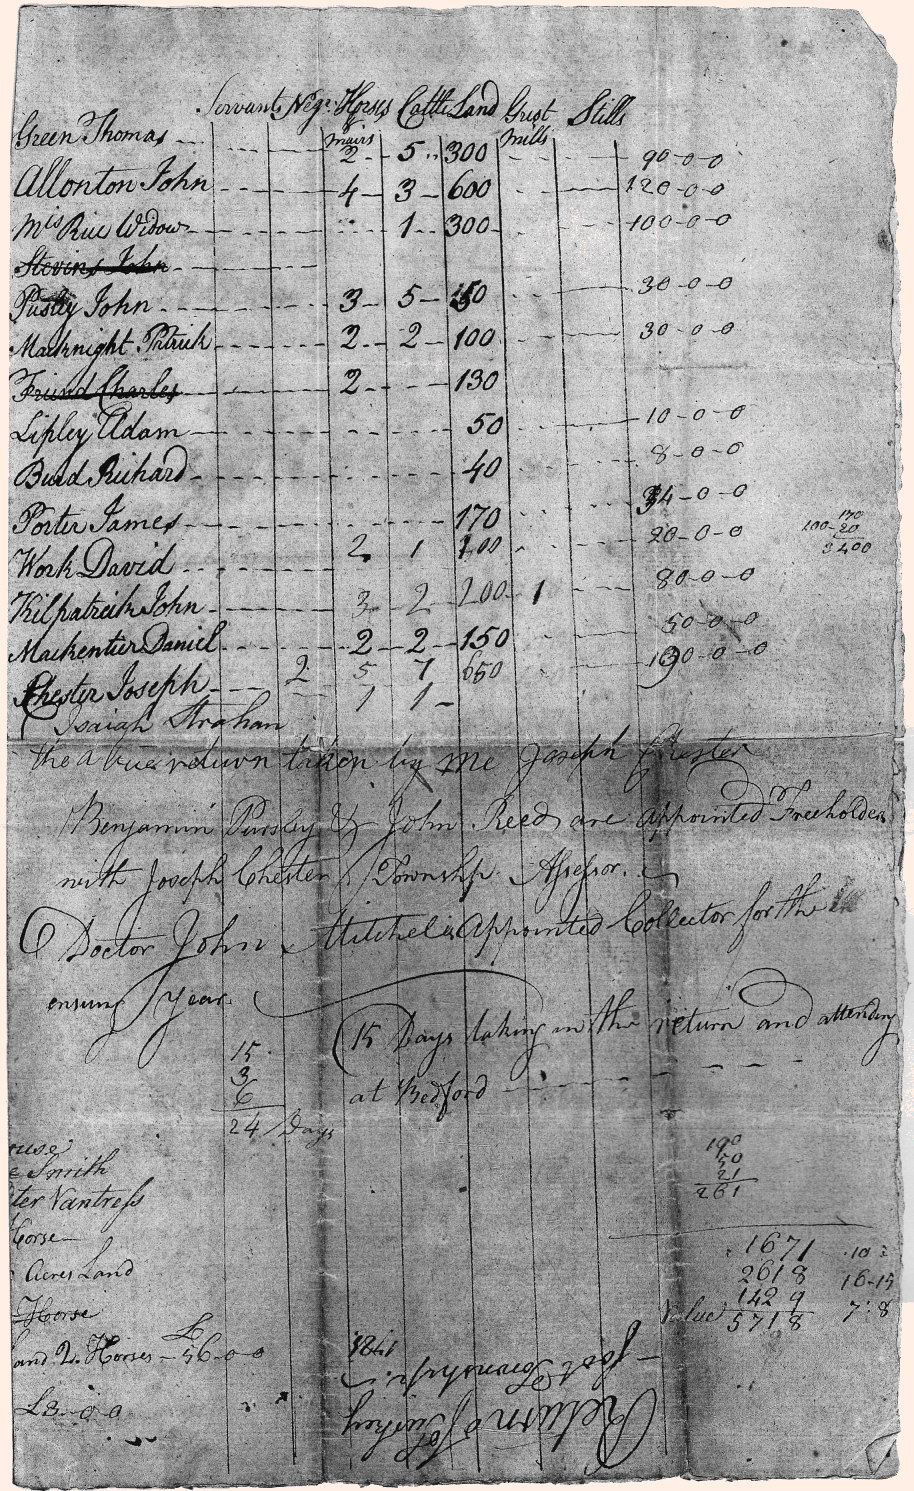 Servants Negr. Horses Cattle Land Grist Stills
mairs mills
Green Thomas 2 5 300 90-0-0
Allonton John 4 3 600 120-0-0
Mis Rue Widow 1 300 100-0-0
Stevins John
Pusley John 3 5 150 30-0-0
Macknight Patrick 2 2 100 30-0-0
Friend Charles 2 130
Lipley Adam 50 10-0-0
Burd Richard 40 8-0-0
Porter James 170 34-0-0
170
100-20
3400
Work David 2 1 100 20-0-0
Kilpatrick John 3 2 200 1 80-0-0
Mackentier Daniel 2 2 150 50-0-0
Chester Joseph 2 5 7 650 190-0-0
Isaiah Strahan 1 1
the above return taken by me Joseph Chester
Benjamin Pursley & John Reed are appointed Freeholders
with Joseph Chester Township Assessor.
Doctor John Mitchel is Appointed Collector for the
ensuing year.
15 Days taking in the return and attending
at Bedford
15
3
6
24 Days
ouse
e Smith
ter Vantress
Horse
Acres Land
Horse
and 2 Horses - £56-0-0
£3-0-0
190
50
21
261
1671 10
2618 16-15
1429
Value 5718 7:8
Return of
Township
1781